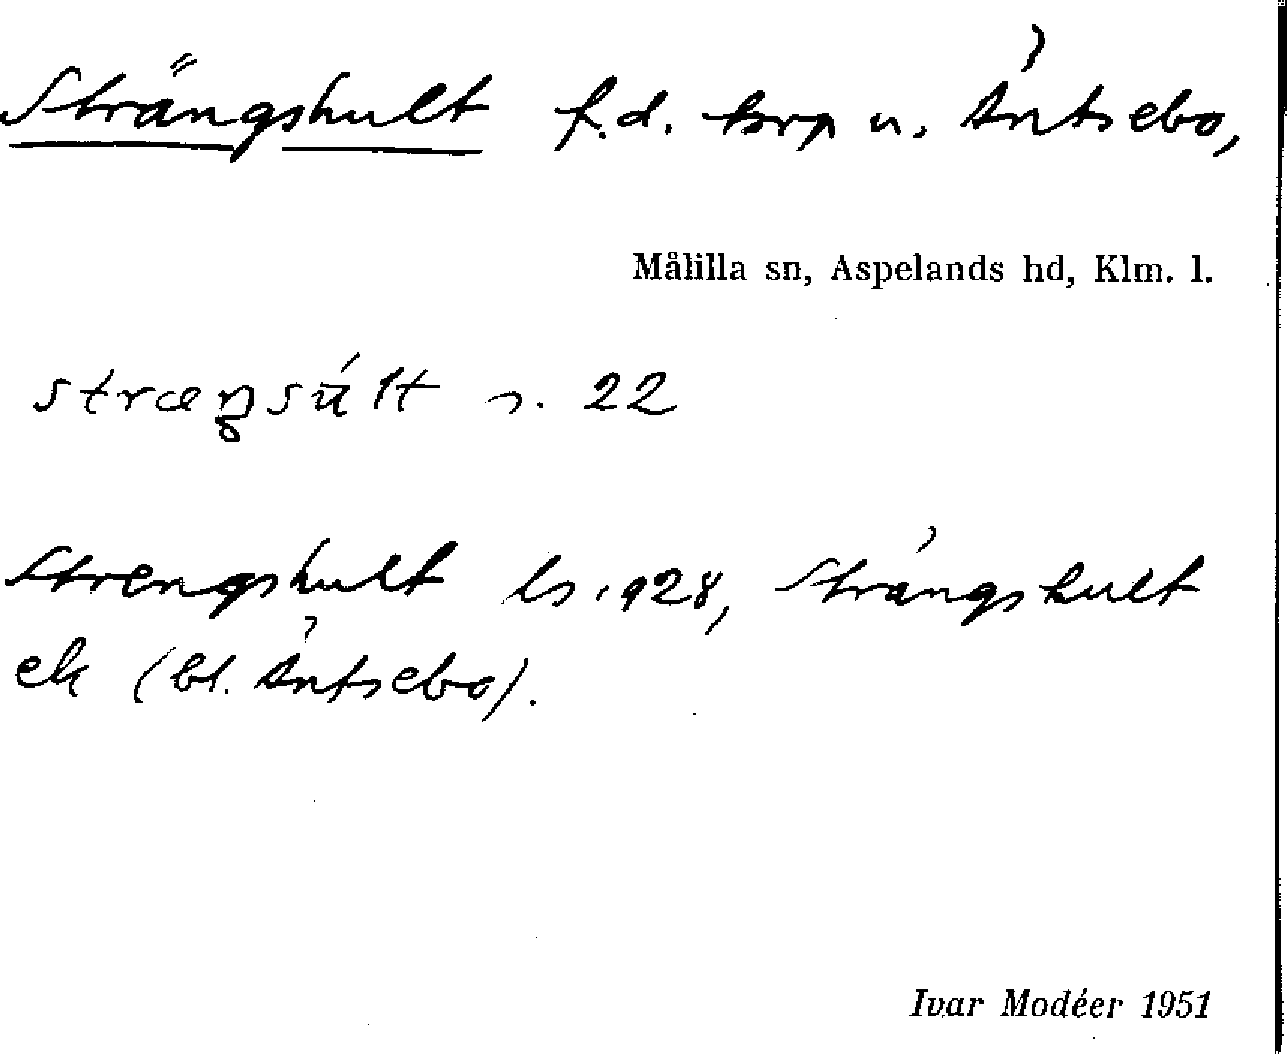 Strängshult f.d. torp u. Äntsebo,
Målilla sn, Aspelands hd, Klm. l.
stræŋsúlt s. 22
Strengshult ls. 1928, Strängshult
ek (bl. Äntsebo).
Ivar Modéer 1951